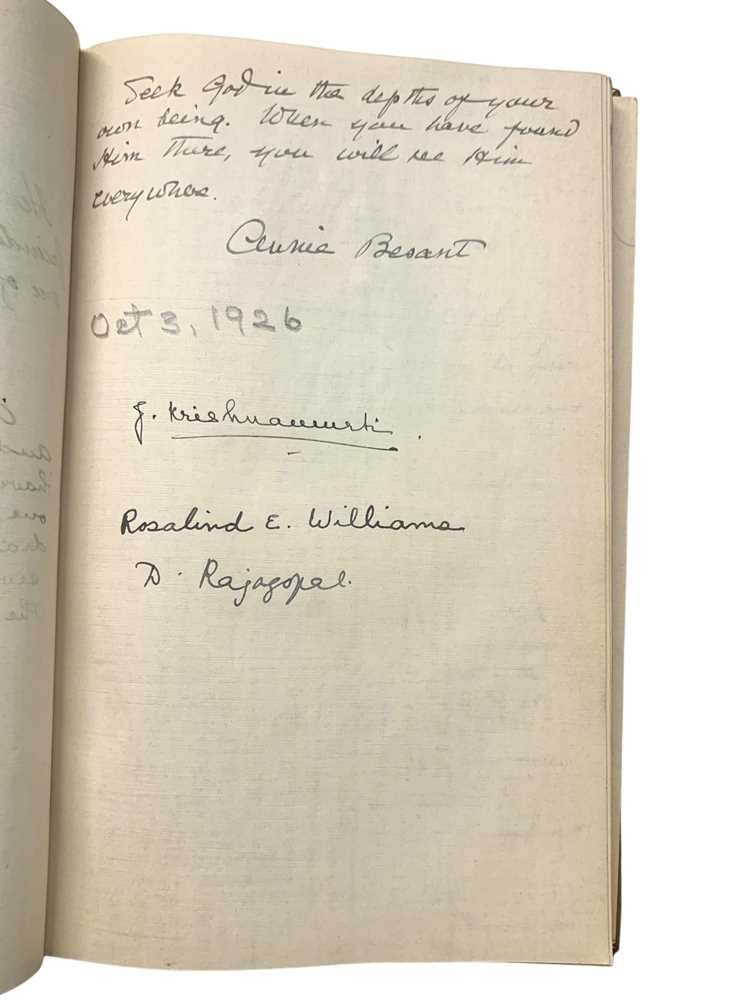 Seek God in the depths of your
own being. When you have found
Him there, you will see Him
everywhere.
Annie Besant
Oct 3, 1926
J. Krishnamurti
Rosalind E. Williams
D. Rajagopal.